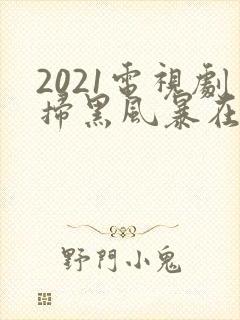 2021電視劇
掃黑風暴在
野門小鬼